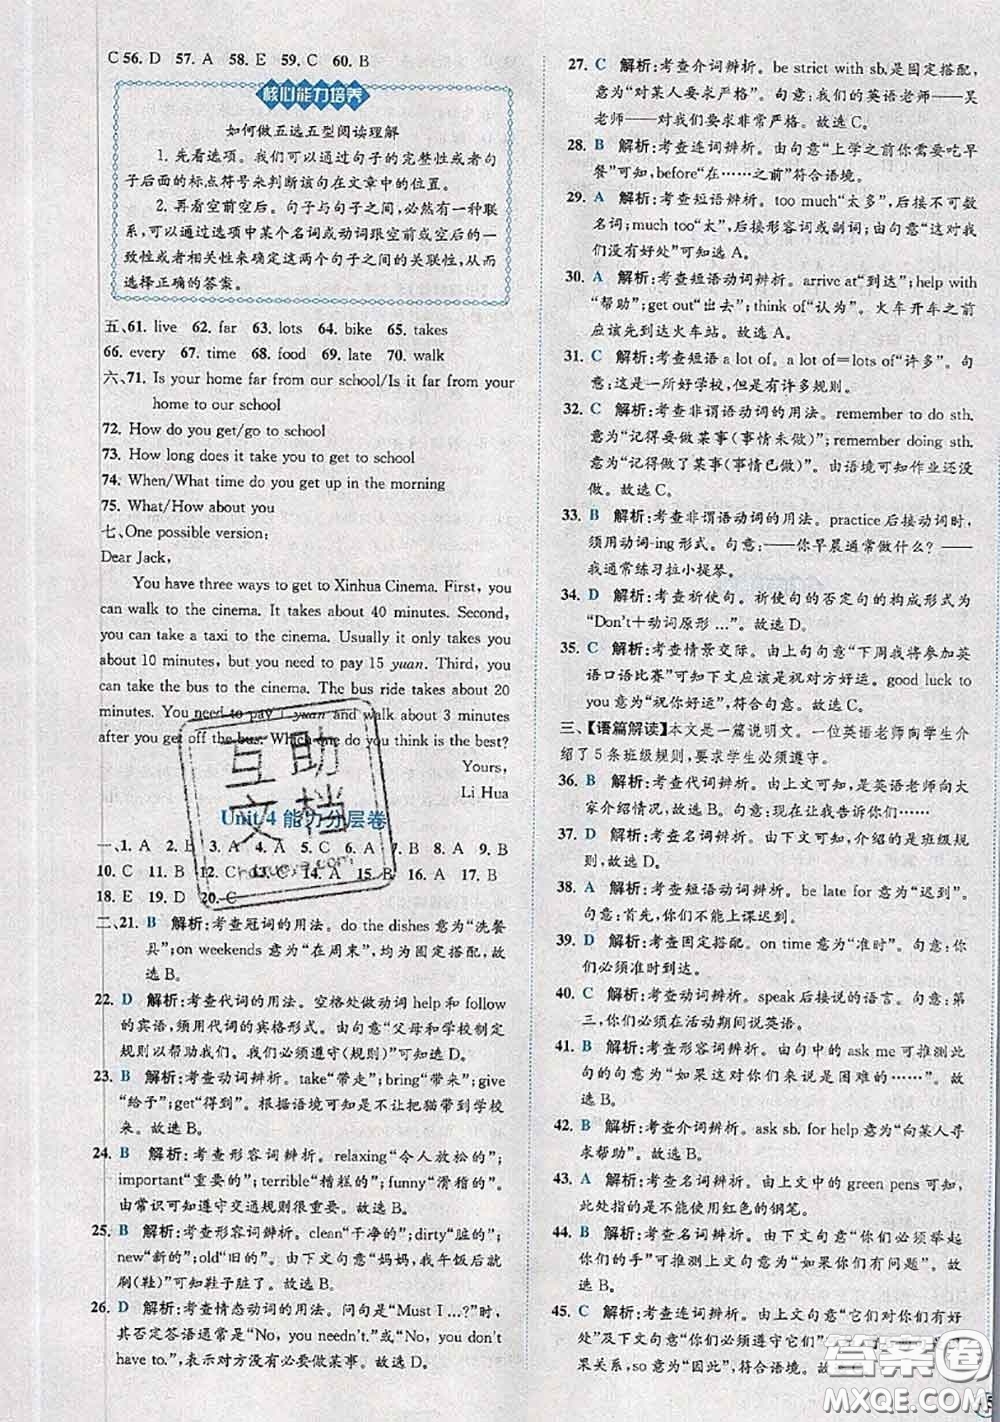 C 56. D 57. A 58. E 59. C 60. B
核心能力培养
如何做五选五型阅读理解
1. 先看选项。我们可以通过句子的完整性或者句
子后面的标点符号来判断该句在文章中的位置。
2. 再看空前空后。句子与句子之间,必然有一种联
系,可以通过选项中某个名词或动词跟空前或空后的一
致性或者相关性来确定这两个句子之间的关联性,从而
选择正确的答案。
五、61. live 62. far 63. lots 64. bike 65. takes
66. every 67. time 68. food 69. late 70. walk
六、71. Is your home far from our school/Is it far from your
home to our school
72. How do you get/go to school
73. How long does it take you to get to school
74. When/What time do you get up in the morning
75. What/How about you
七、One possible version:
Dear Jack,
You have three ways to get to Xinhua Cinema. First, you
can walk to the cinema. It takes about 40 minutes. Second,
you can take a taxi to the cinema. Usually it only takes you
about 10 minutes, but you need to pay 15 yuan. Third, you
can take the bus to the cinema. The bus ride takes about 20
minutes. You need to pay 1 yuan and walk about 3 minutes
after you get off the bus. Which one do you think is the best?
Yours,
Li Hua
Unit 4 能力分层卷
一、1. A 2. B 3. A 4. A 5. C 6. B 7. B 8. A 9. B
10. C 11. B 12. C 13. C 14. A 15. B 16. A 17. B
18. E 19. D 20. C
二、21. B 解析:考查冠词的用法。do the dishes意为“洗餐
具”;on weekends意为“在周末”,均为固定搭配,故
选B。
22. D 解析:考查代词的用法。空格处做动词help和follow
的宾语,须用代词的宾格形式。由句意“父母和学校制定
规则以帮助我们。我们必须遵守(规则)”可知选D。
23. B 解析:考查动词辨析。take“带走”;bring“带来”;give
“给予”;get“得到”。根据语境可知是不让把猫带到学校
来。故选B。
24. B 解析:考查形容词辨析。relaxing“令人放松的”;
important“重要的”;terrible“糟糕的”;funny“滑稽的”。
由常识可知遵守交通规则很重要。故选B。
25. B 解析:考查形容词辨析。clean“干净的”;dirty“脏的”;
new“新的”;old“旧的”。由下文句意“妈妈,我午饭后就
刷(鞋)”可知鞋子脏了。故选B。
26. D 解析:考查情态动词的用法。问句是“Must I ...?”时,
其否定答语通常是“No, you needn't.”或“No, you don't
have to.”,表示对方没有必要做某事。故选D。
27. C 解析:考查介词辨析。be strict with sb.是固定搭配,
意为“对某人要求严格”。句意:我们的英语老师——吴
老师——对我们要求非常严格。故选C。
28. B 解析:考查连词辨析。由句意“上学之前你需要吃早
餐”可知,before“在……之前”符合语境。
29. A 解析:考查短语辨析。too much“太多”,后接不可数
名词;much too“太”,后接形容词或副词。由句意“这对
我们没有好处”可知选A。
30. A 解析:考查短语动词辨析。arrive at“到达”;help with
“帮助”;get out“出去”;think of“认为”。火车开车之前
应该先到达火车站。故选A。
31. C 解析:考查短语a lot of。a lot of=lots of“许多”。句
意:这是一所好学校,但是有许多规则。
32. C 解析:考查非谓语动词的用法。remember to do sth.
意为“记得要做某事(事情未做)”;remember doing sth.
意为“记得做了某事(事情已做)”。由语境可知作业还没
做。故选C。
33. B 解析:考查非谓语动词的用法。practice后接动词时,
须用动词-ing形式。句意:——你早晨通常做什么?——
我通常练习拉小提琴。
34. D 解析:考查祈使句。祈使句的否定句的构成形式为
“Don't+动词原形 ...”。故选D。
35. C 解析:考查情景交际。由上句句意“下周我将参加英
语口语比赛”可知下句应该是祝对方好运。good luck to
you意为“祝你好运”,符合句意。故选C。
三、【语篇解读】本文是一篇说明文。一位英语老师向学生介
绍了5条班级规则,要求学生必须遵守。
36. B 解析:考查代词辨析。由上文可知,是英语老师向大
家介绍情况,故此处意为“让我告诉你们……”
37. D 解析:考查名词辨析。由下文可知,介绍的是班级规
则!故选D。
38. A 解析:考查短语动词辨析。be late for意为“迟到”。
句意:首先,你们不能上课迟到。
39. D 解析:考查固定搭配。on time意为“准时”。句意:你
们必须准时到达。
40. C 解析:考查动词辨析。speak后接说的语言。句意:第
三,你们必须在活动期间说英语。
41. B 解析:考查形容词辨析。由句中的ask me可推测此
句的句意为“如果这对你们来说是困难的……”
42. B 解析:考查介词辨析。ask sb. for help意为“向某人寻
求帮助”。故选B。
43. A 解析:考查名词辨析。由上文中的green pens可知,
此处指的是不能使用红色的钢笔。
44. B 解析:考查名词辨析。由下文句意“你们必须举起你
们的手”可推测上文句意为“如果你们有问题”。故选B。
45. C 解析:考查连词辨析。由上文句意“它们对你们有好
处”及下文句意“你们必须遵守它们”
果关系,so意为“因此”,符合语境。
互助
文档
答案圈
MXQE.COM